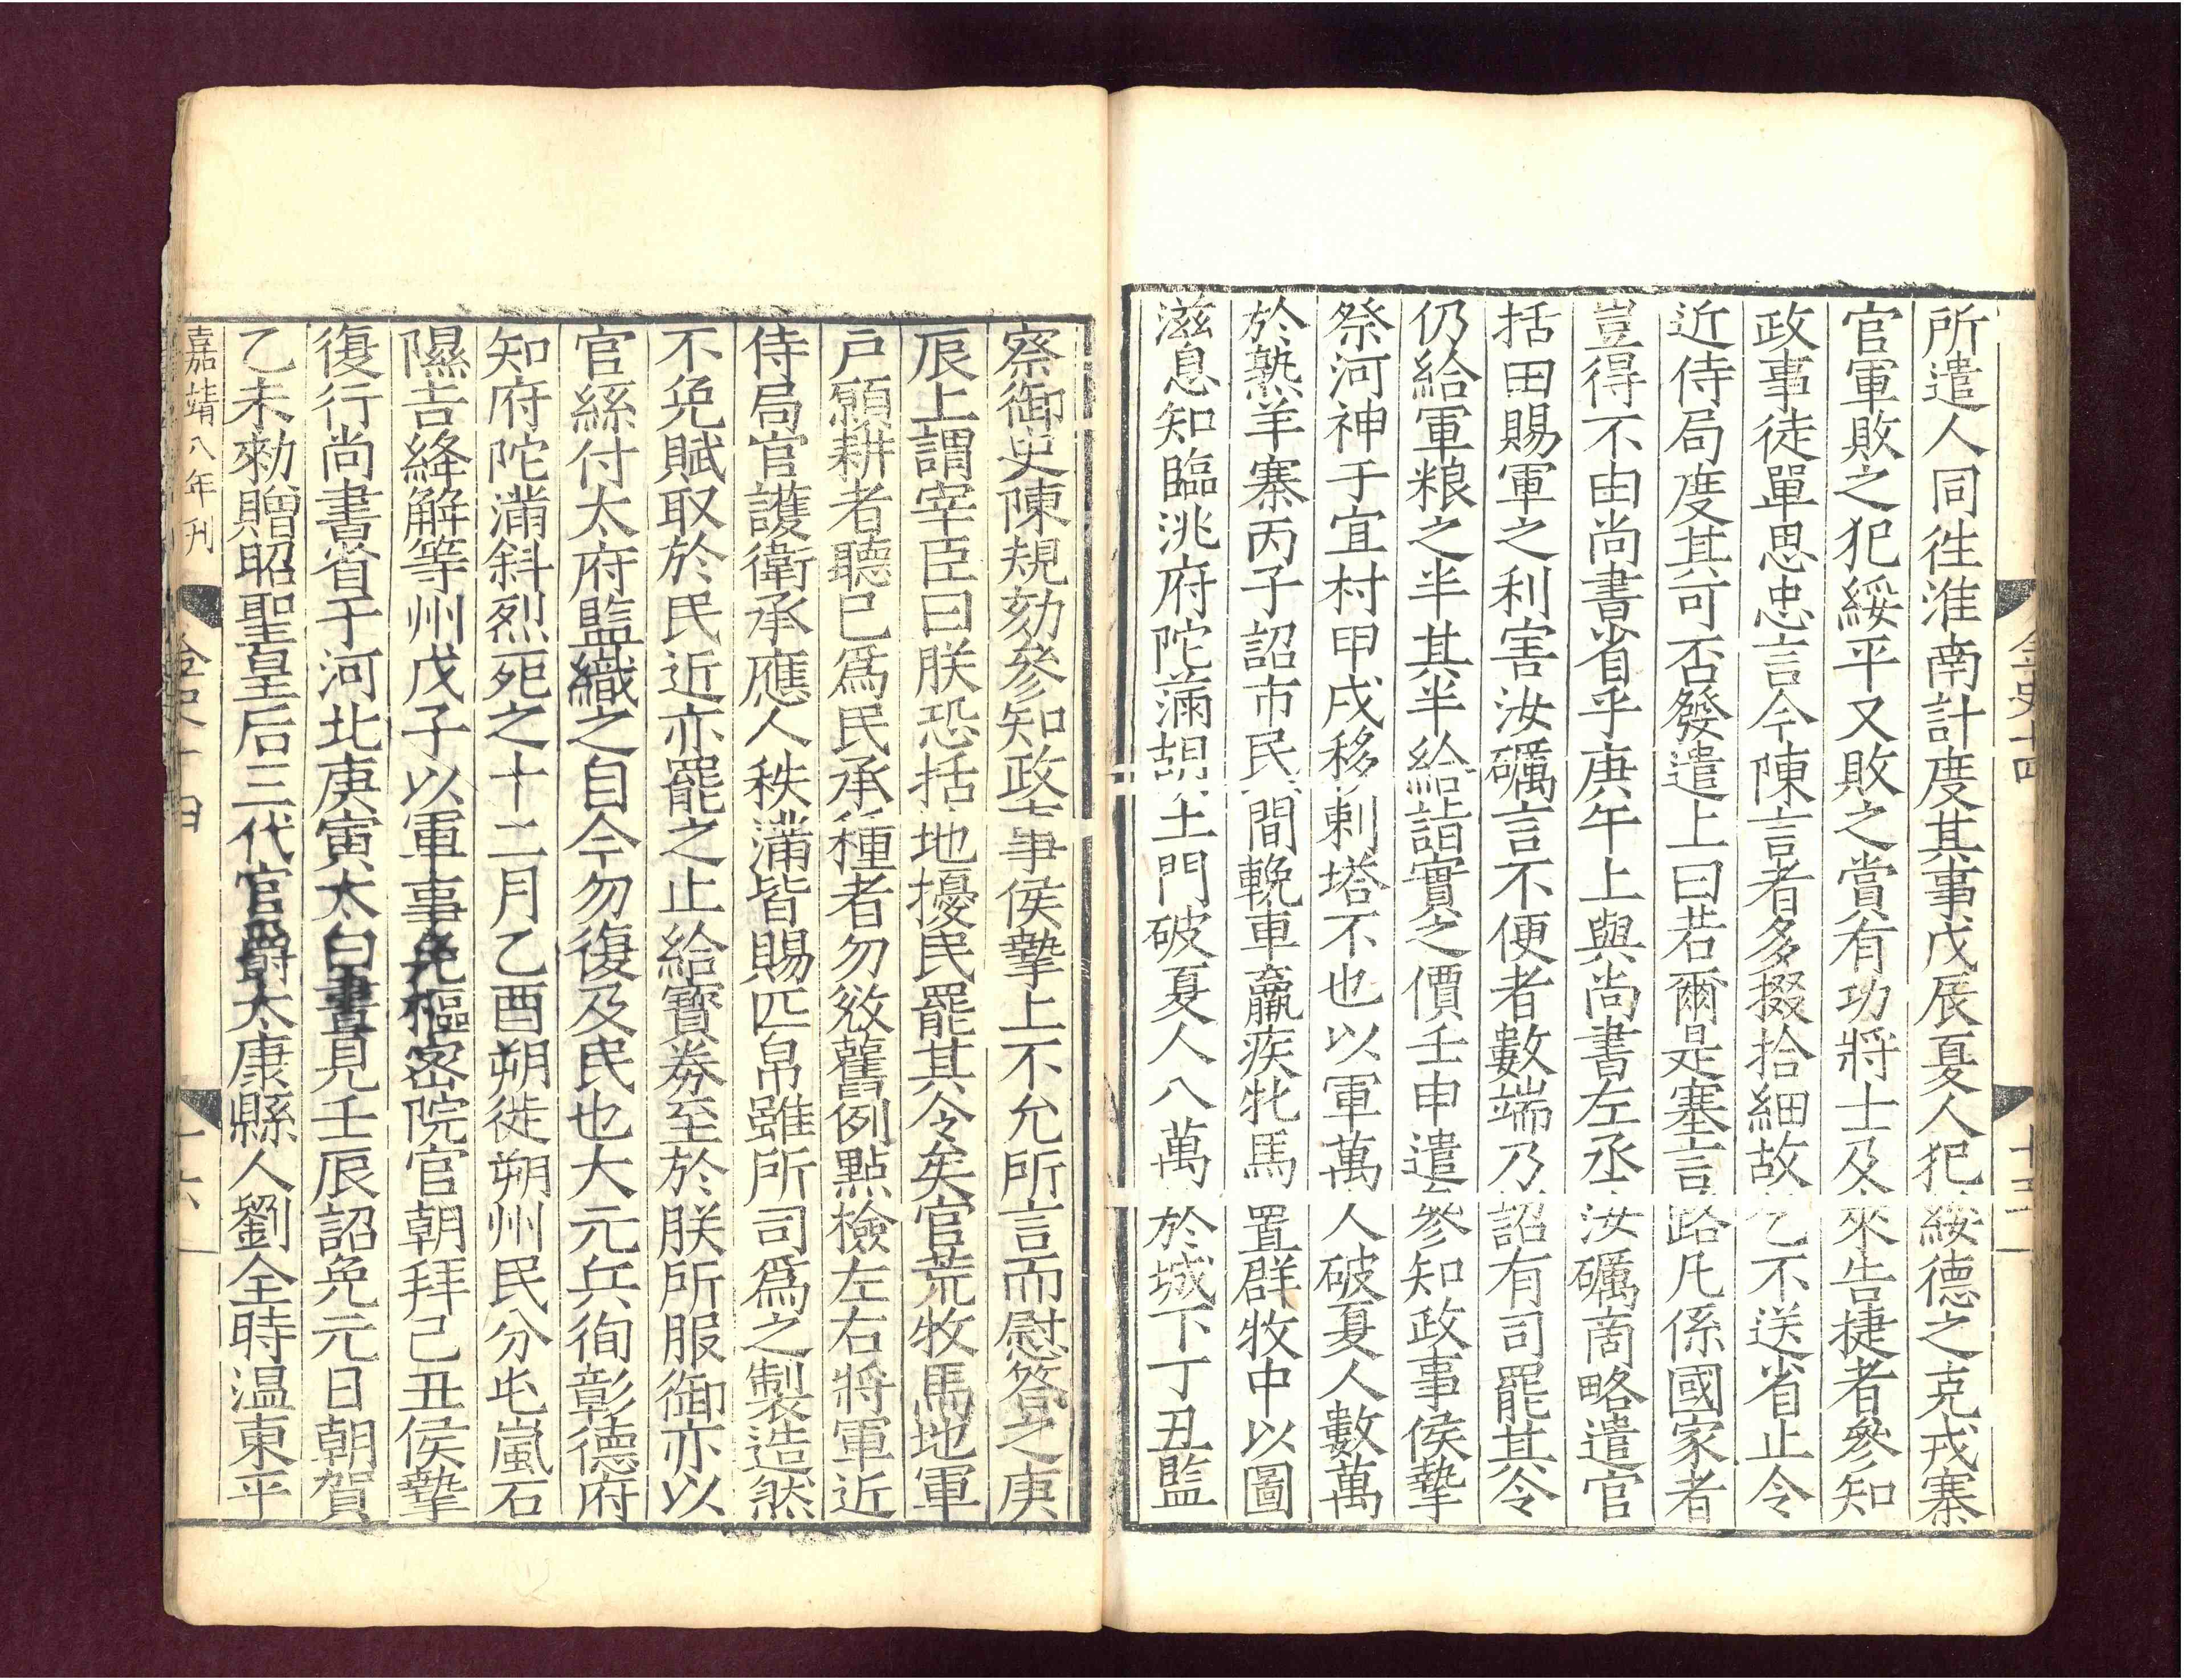 所遣人同徃淮南計度其事戊辰夏人犯綏德之克戎寨
官軍敗之犯綏平又敗之賞有功將士及來告捷者參知
政事徒單思忠言今陳言者多掇拾細故乞不送省止令
近侍局度其可否發遣上曰若爾是塞言路凡係國家者
豈得不由尚書省乎庚午上與尚書左丞汝礪商略遣官
括田賜軍之利害汝礪言不便者數端乃詔有司罷其令
仍給軍粮之半其半給詣實之價壬申遣參知政事侯摯
祭河神于宜村甲戌移剌塔不也以軍萬人破夏人數萬
於熟羊寨丙子詔市民間輓車羸疾牝馬置群牧中以圖
滋息知臨洮府陀滿胡土門破夏人八萬於城下丁丑監
金史十四
十五
察御史陳規劾參知政事侯摯上不允所言而慰答之庚
辰上謂宰臣曰朕恐括地擾民罷其令矣官荒牧馬地軍
戶願耕者聽已爲民承種者勿効舊例點檢左右將軍近
侍局官護衛承應人秩滿皆賜匹帛雖所司爲之製造然
不免賦取於民近亦罷之止給寶劵至於朕所服御亦以
官絲付太府監織之自今勿復及民也大元兵徇彰德府
知府陀滿斜烈死之十二月乙酉朔徙朔州民分屯嵐石
隰吉絳解等州戊子以軍事免樞密院官朝拜己丑侯摯
復行尚書省于河北庚寅太白晝見壬辰詔免元日朝賀
乙未勑贈昭聖皇后三代官爵太康縣人劉全時溫東平
嘉靖八年刊
金史十四
十六